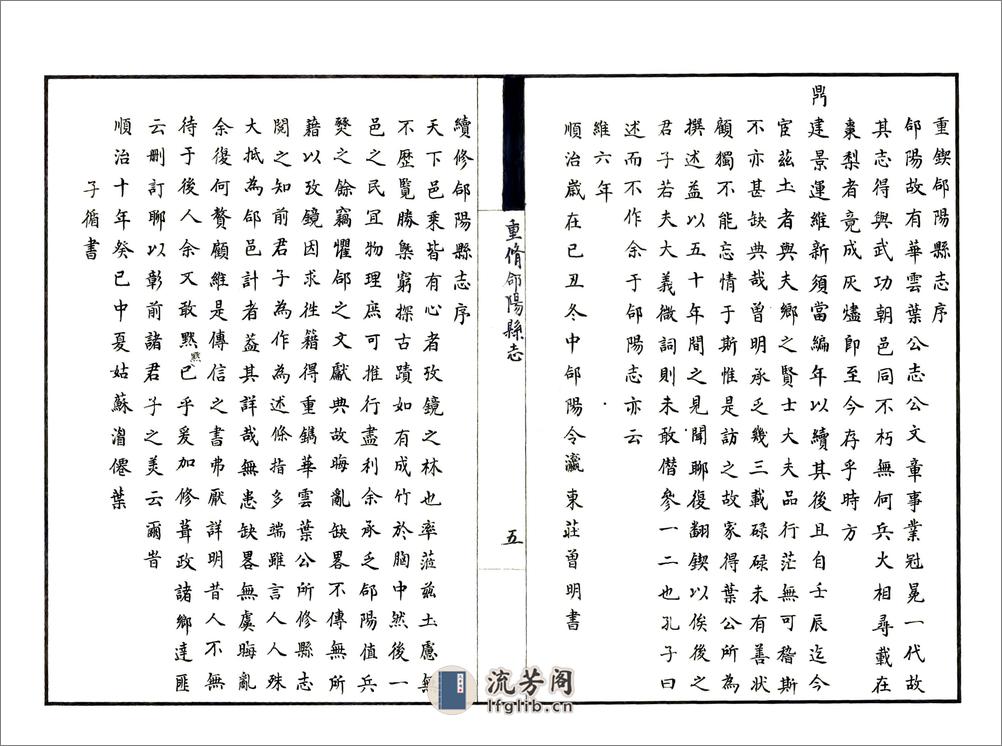 重鍥郃陽縣志序
郃陽故有華雲葉公志公文章事業冠冕一代故
其志得與武功朝邑同不朽無何兵火相尋載在
棗梨者竟成灰燼即至今存乎時方
鼎
建景運維新須當編年以續其後且自壬辰迄今
宦茲土者與夫鄉之賢士大夫品行茫無可稽斯
不亦甚缺典哉曽明承乏幾三載碌碌未有善狀
顧獨不能忘情于斯惟是訪之故家得葉公所為
撰述益以五十年間之見聞聊復翻鍥以俟後之
君子若夫大義微詞則未敢僭參一二也孔子曰
述而不作余于郃陽志亦云
維六年
順治歲在己丑冬中郃陽令瀛東莊曽明書
重脩郃陽縣志
五
續修郃陽縣志序
天下邑乘皆有心者攷鏡之林也率蒞兹土慮無
不歷覽勝槩窮探古蹟如有成竹於胸中然後一
邑之民宜物理庶可推行盡利余承乏郃陽值兵
燹之餘竊懼郃之文獻典故晦亂缺畧不傳無所
藉以攷鏡因求徃籍得重鐫華雲葉公所修縣志
閱之知前君子為作為述條指多端雖言人人殊
大抵為郃邑計者益其詳哉無患缺畧無虞晦亂
余復何贅顧維是傳信之書弗厭詳明昔人不無
待于後人余又敢默默已乎爰加修葺政諸鄉達匪
云刪訂聊以彰前諸君子之美云爾旹
順治十年癸巳中夏姑蘇湻僊葉
子循書
流芳阁
lfglib.cn